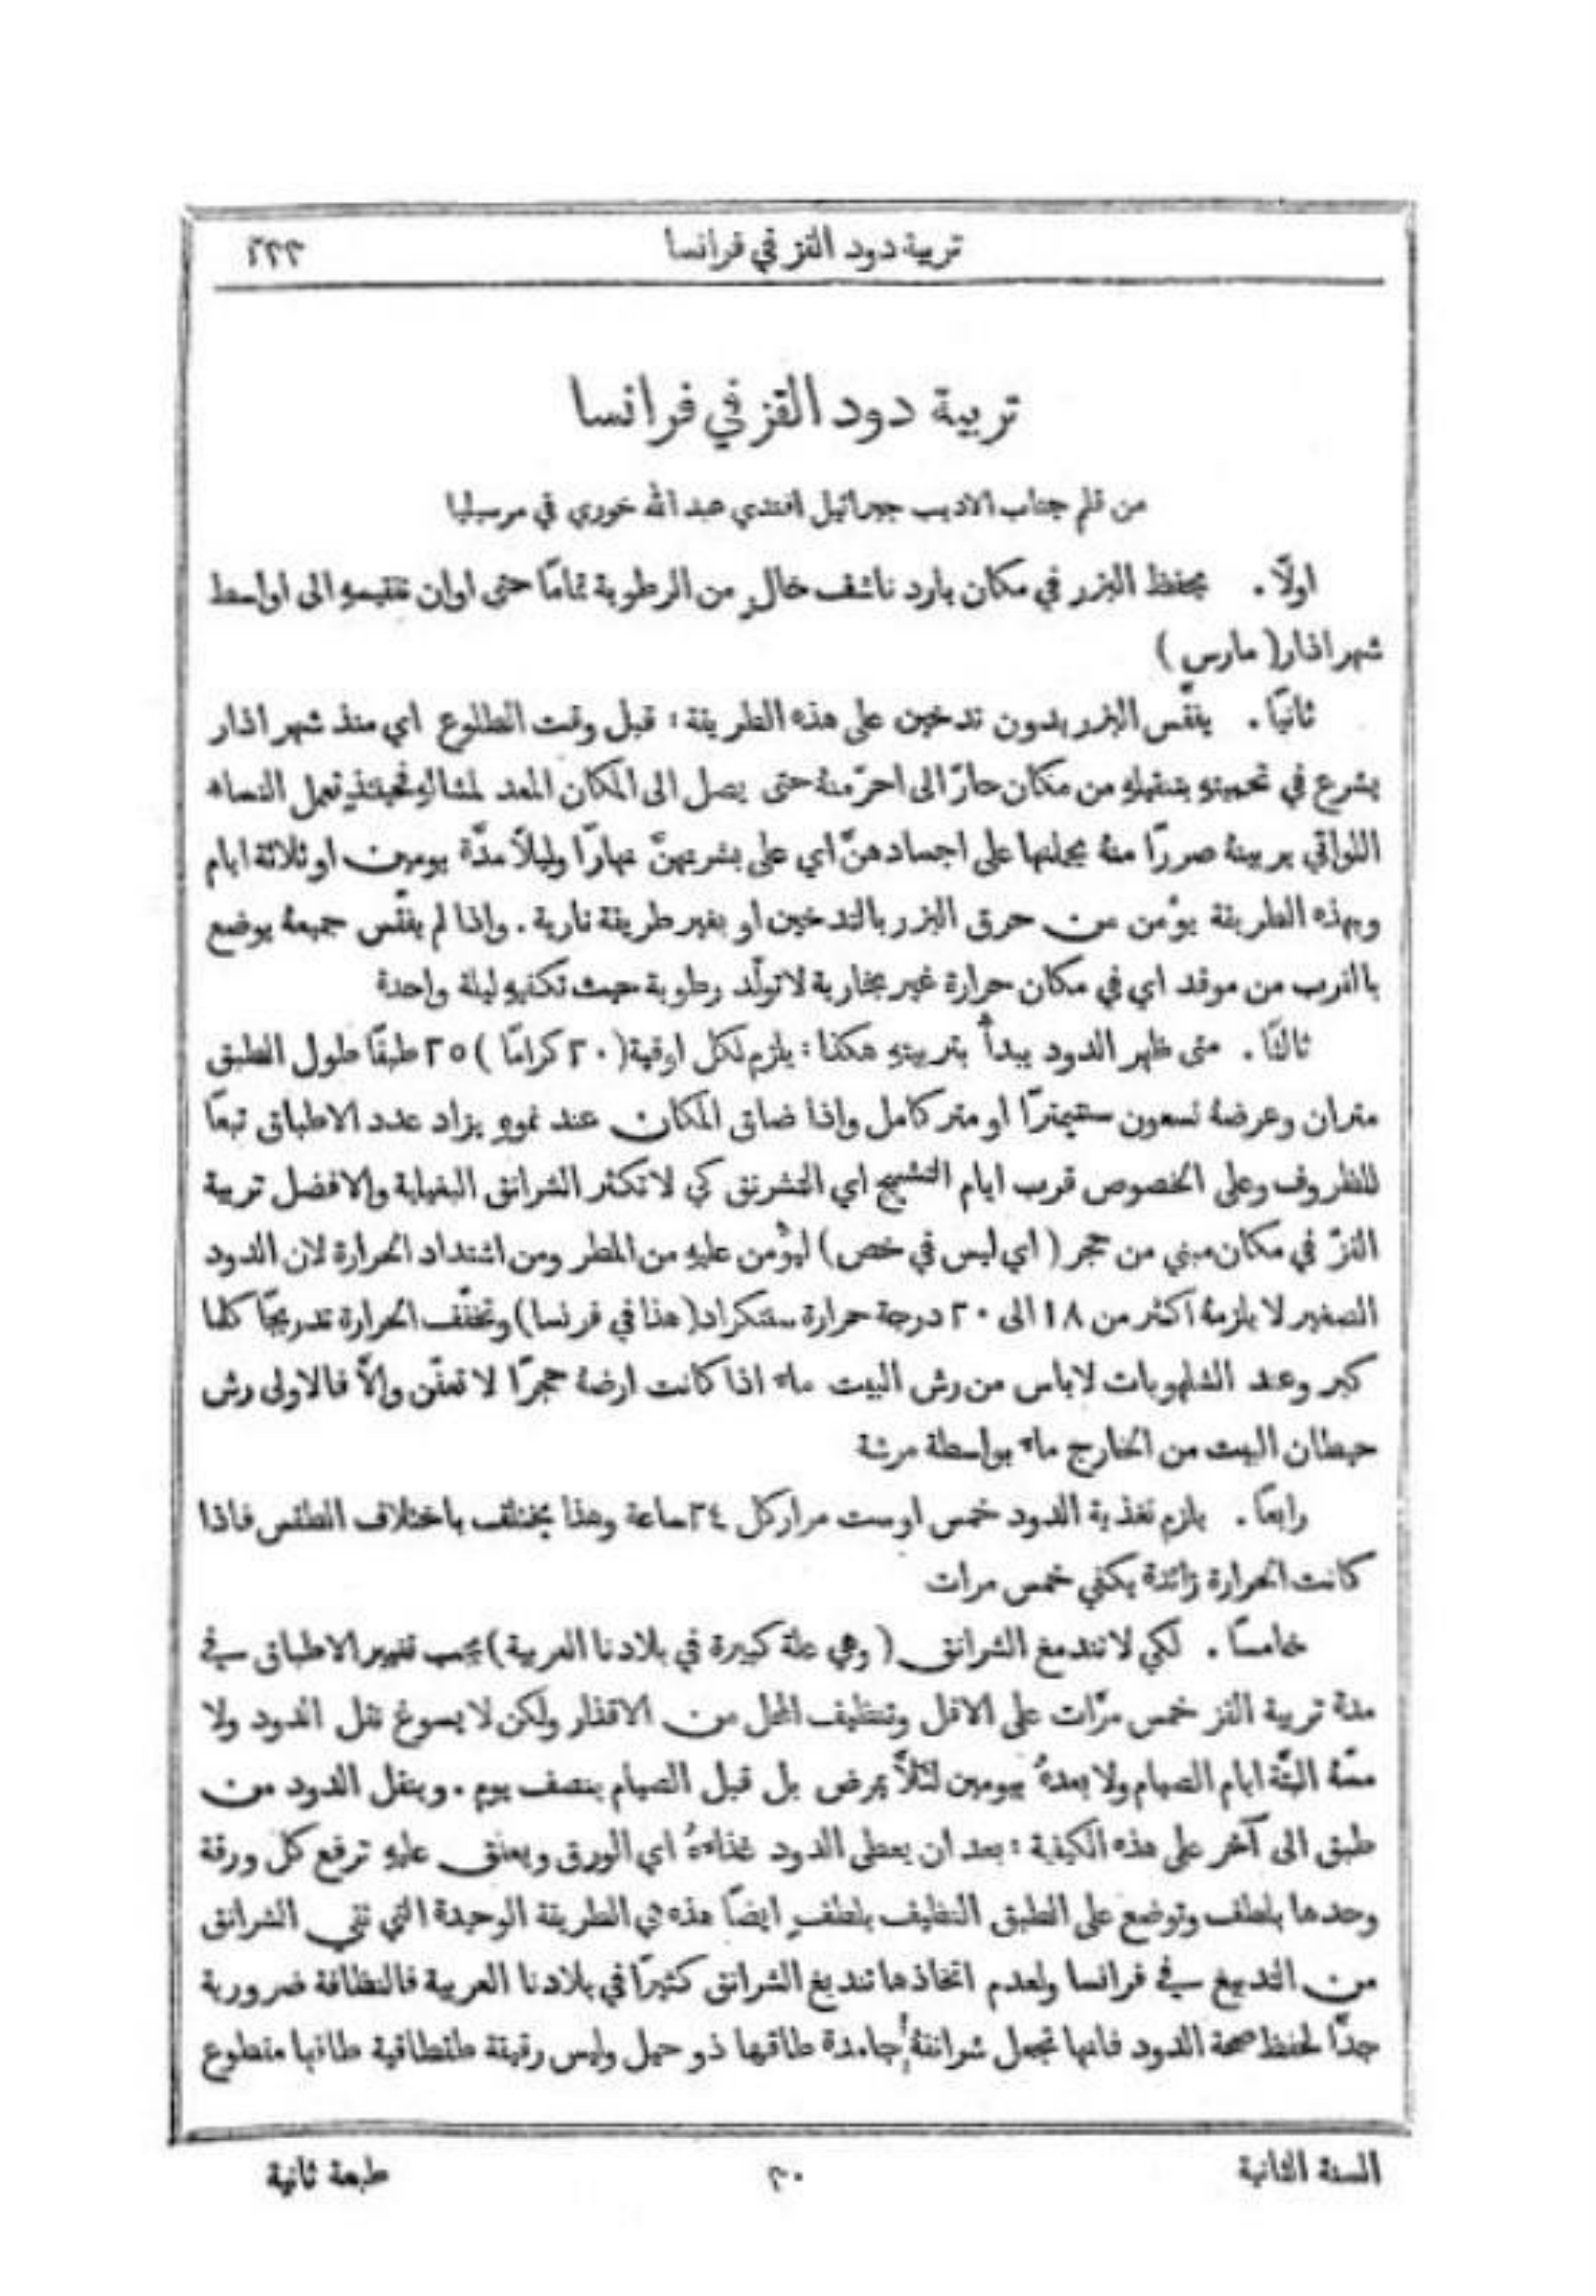 تربية دود القز في فرانسا
تربية دود القز في فرانسا
من قلم جناب الاديب جبرائيل افندي عبد الله خوري في مرسيليا
اولًا . يحفظ البزر في مكان بارد ناشف خالٍ من الرطوبة تمامًا حتى اوان تنقيسهِ الى اواسط
شهر اذار ( مارس )
ثانيًا . ينقّس البزر بدون تدخين على هذه الطريقة : قبل وقت الطلوع اي منذ شهر اذار
يشرع في تحميتهِ بتنقيلهِ من مكان حارّ الى احرّ منهُ حتى يصل الى المكان المعد لمثالهِ فحينئذٍ تعمل النساء
اللواتي يربينهُ صررًا منهُ يحملنها على اجسادهنّ اي على بشرتهنّ نهارًا وليلًا مدَّة يومين او ثلاثة ايام
وبهذه الطريقة يؤمن من حرق البزر بالتدخين او بغير طريقة نارية . واذا لم ينقّس جميعهُ يوضع
بالقرب من موقد اي في مكان حرارة غير بخارية لا تولّد رطوبة حيث تكفيهِ ليلة واحدة
ثالثًا . متى ظهر الدود يبدأ بتربيتهِ هكذا : يلزم لكل اوقية (٣٠ كرامًا ) ٢٥ طبقًا طول الطبق
متران وعرضهُ تسعون سنتيمترًا او متر كامل واذا ضاق المكان عند نموهِ يزاد عدد الاطباق تبعًا
للظروف وعلى الخصوص قرب ايام التشيح اي التشرنق كي لا تكثر الشرانق البغيابة والافضل تربية
القزّ في مكان مبني من حجر ( اي ليس في خص ) ليؤمن عليهِ من المطر ومن اشتداد الحرارة لان الدود
الصغير لا يلزمهُ اكثر من ١٨ الى ٢٠ درجة حرارة سنتكراد ( هذا في فرنسا ) وتخفّف الحرارة تدريجًا كلما
كبر وعند الشلهوبات لا باس من رش البيت ماء اذا كانت ارضهُ حجرًا لا تعفّن والّا فالاولى رش
حيطان البيت من الخارج ماء بواسطة مرشة
رابعًا . يلزم تغذية الدود خمس او ست مرار كل ٢٤ ساعة وهذا يختلف باختلاف الطقس فاذا
كانت الحرارة زائدة يكفي خمس مرات
خامسًا . لكي لا تندمغ الشرانق ( وهي علة كبيرة في بلادنا العربية ) يجب تغيير الاطباق في
مدة تربية القز خمس مرّات على الاقل وتنظيف المحل من الاقذار ولكن لا يسوغ نقل الدود ولا
مسّهُ البتَّة ايام الصيام ولا بعدهُ بيومين لئلَّا يمرض بل قبل الصيام بنصف يوم . وينقل الدود من
طبق الى آخر على هذه الكيفية : بعد ان يعطى الدود غذاءهُ اي الورق ويعلق عليهِ ترفع كل ورقة
وحدها بلطف وتوضع على الطبق النظيف بلطفٍ ايضًا هذه هي الطريقة الوحيدة التي تقي الشرانق
من التدبيغ في فرانسا ولعدم اتخاذها تندبغ الشرانق كثيرًا في بلادنا العربية فالنظافة ضرورية
جدًّا لحفظ صحة الدود فانها تجعل شرانقهُ جامدة طاقيها ذو حيل وليس رقيقة طقطاقية طاقها مقطوع
السنة الثانية
٣٠
طبعة ثانية